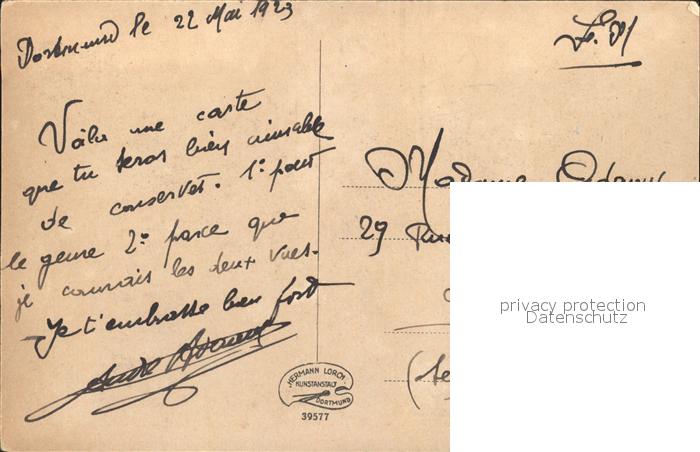 Dortmund le 22 Mai 1923
F. M
Voila une carte
que tu seras bien aimable
de conserver. 1º pour
le genre 2º parce que
je connais les deux vues.
Je t'embrasse bien fort
André
Madame
29 Rue
HERMANN LORCH
KUNSTANSTALT
DORTMUND
39577
privacy protection
Datenschutz